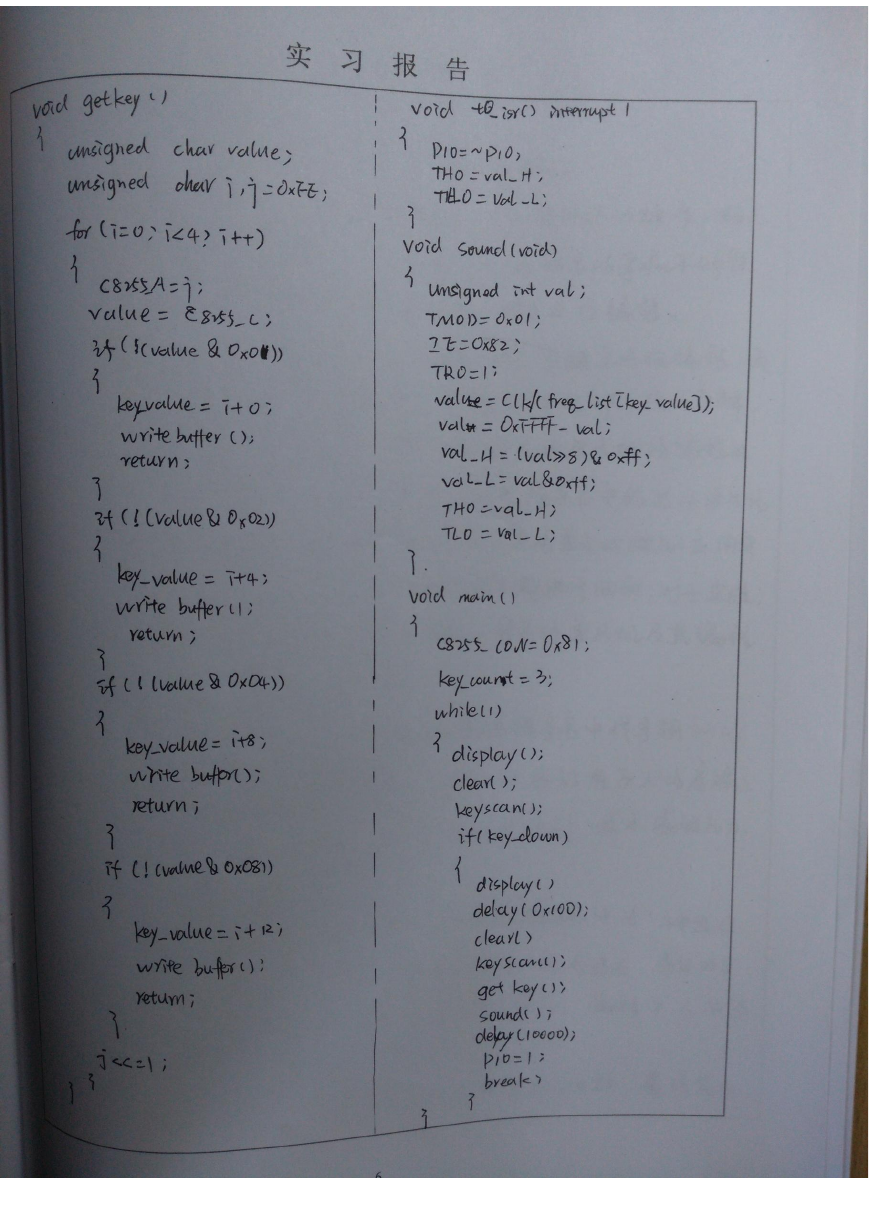 实习报告
void getkey()
{
unsigned char value;
unsigned char i,j=0xFE;
for(i=0; i<4; i++)
{
C8255_A=j;
value = C8255_C;
if(!(value & 0x01))
{
key_value = i+0;
write buffer ();
return;
}
if(!(value & 0x02))
{
key_value = i+4;
write buffer();
return;
}
if(!(value & 0x04))
{
key_value = i+8;
write buffer();
return;
}
if(!(value & 0x08))
{
key_value = i+12;
write buffer();
return;
}
j<<=1;
}
}
void t0_isr() interrupt 1
{
P10=~P10;
TH0=val_H;
TL0=val_L;
}
void sound(void)
{
unsigned int val;
TMOD=0x01;
IE=0x82;
TR0=1;
val= Clk/(freq_list[key_value]);
val= 0xFFFF-val;
val_H=(val>>8)&0xff;
val_L=val&0xff;
TH0=val_H;
TL0=val_L;
}.
void main()
{
C8255_CON=0x81;
key_count=3;
while(1)
{ display();
clear();
keyscan();
if(key_down)
{
display()
delay(0x100);
clear()
keyscan();
get key();
sound();
delay(10000);
P10=1;
break;
}
}
6